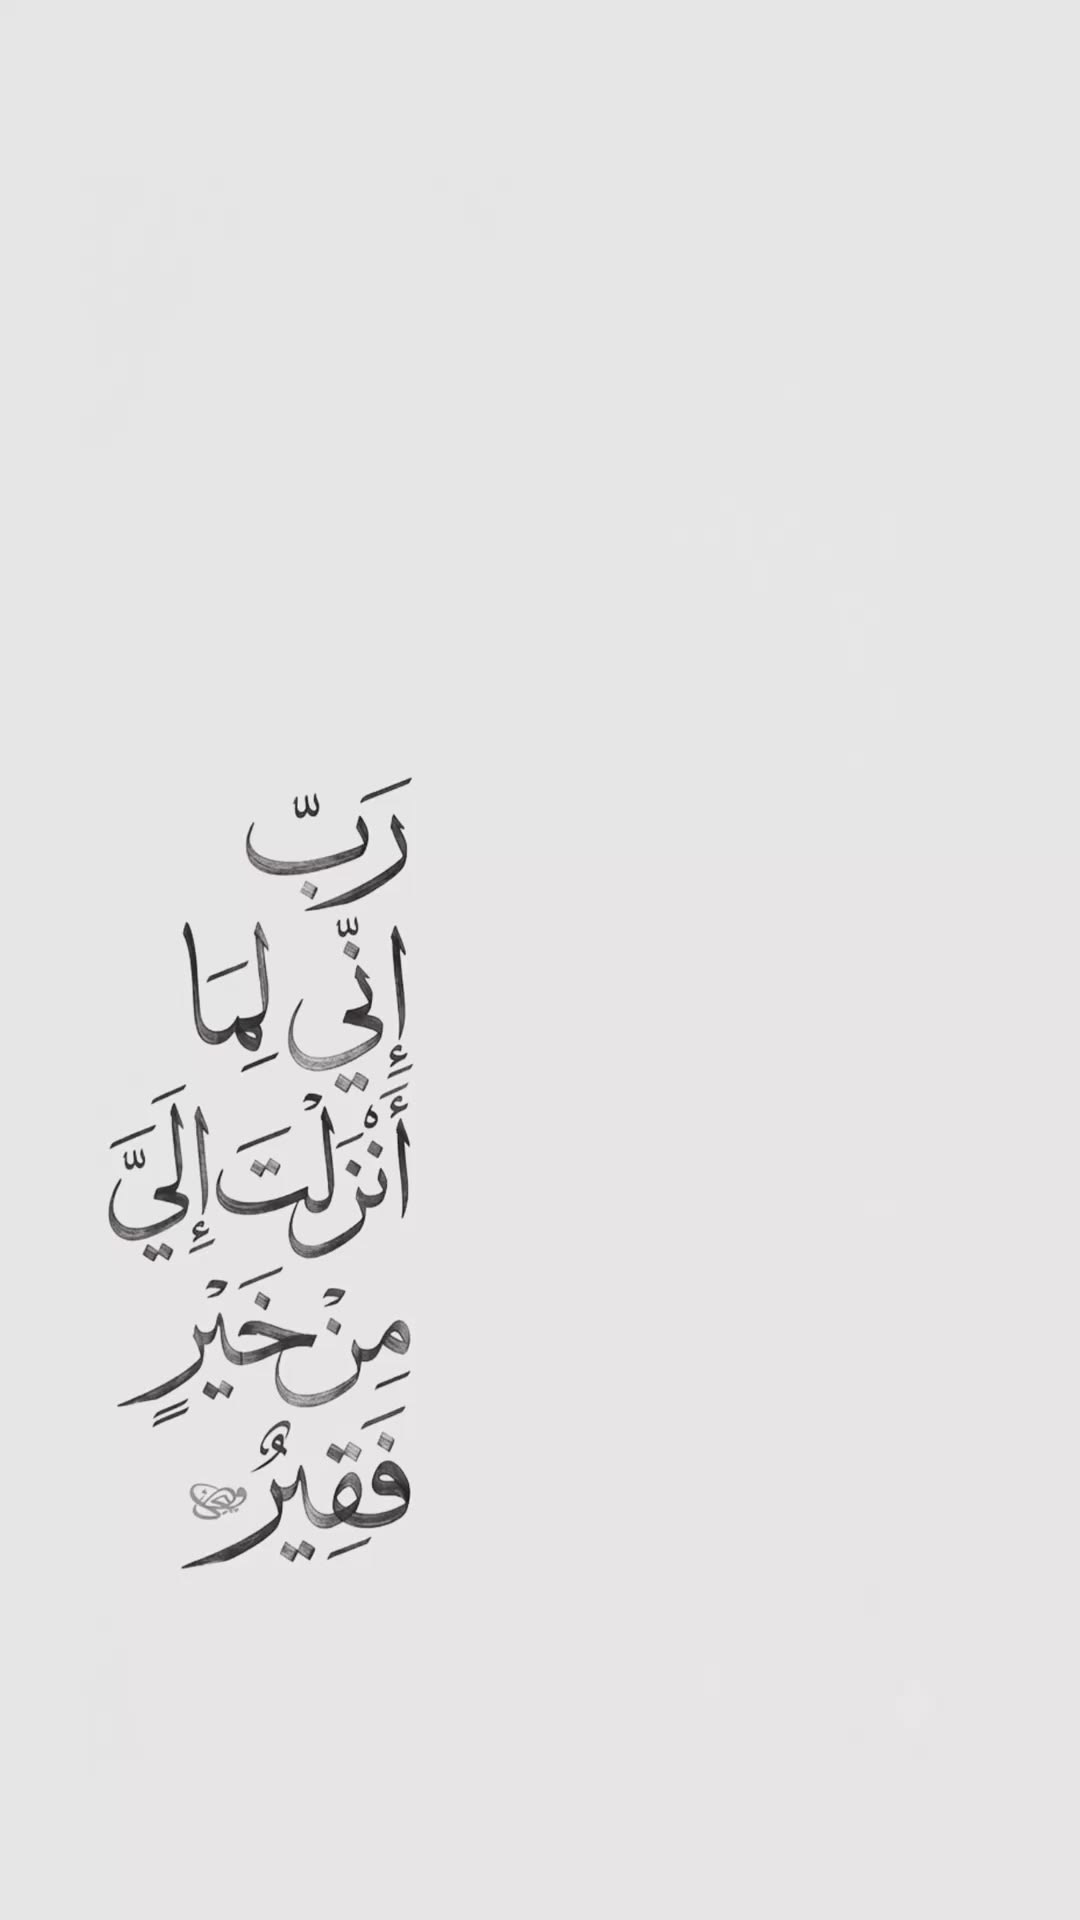 رَبّ
إِنّي لِمَا
أَنْزَلْتَ إِلَيَّ
مِنْ خَيْرٍ
فَقِيرٌ